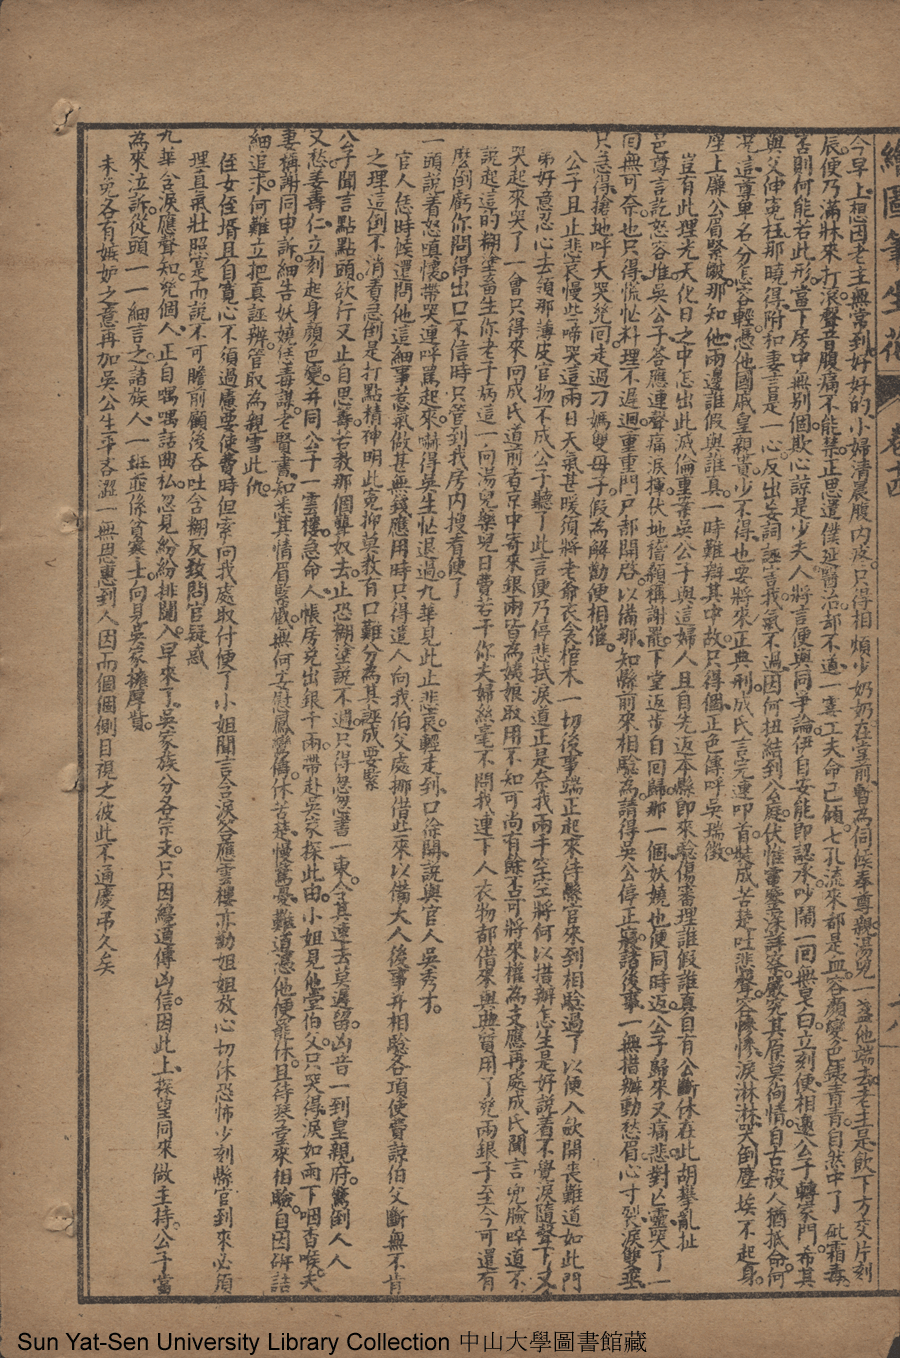 繪圖筆生花 卷十四
今早上想因老主無常到好好的小婦清晨腹內皮只得相煩少奶奶在堂前暫為伺候奉尊親湯兒一盞他端去老主是飲下方交片刻
辰便乃滿牀來打滾聲音腹痛不能禁正思遣僕延醫治却不道一霎工夫命已傾七孔流來都是血容顏變色銕青青自然中了砒霜毒
害則何能若此形當下房中無別個欺心諒是少夫人將言便與同爭論伊自妄能即認承吵鬧一回無皂白立刻便相邀公子轉家門希其
與父伸寃枉那曉得附和妻言是一心反出妄詞誣害我氣不過因何扭結到公庭伏惟憲鑒深詳察嚴究其原莫徇情自古殺人猶抵命何
况這尊卑名分怎容輕憑他國戚皇親貴少不得也要將來正典刑成氏言完連叩首裝成苦楚吐悲聲容慘慘淚淋淋哭倒塵埃不起身
座上廉公眉緊皺那知他兩邊誰假與誰真一時難辯其中故只得個正色傳呼吳瑞徵
豈有此理光天化日之中怎出此滅倫重案吳公子與這婦人且自先返本縣即來驗傷審理誰假誰真自有公斷休在此胡攀亂扯
邑尊言訖怒容堆吳公子答應連聲痛淚揮伏地稽顙稱謝罷下堂返步自回歸那一個妖嬈也便同時返公子歸來又痛悲對亡靈哭了一
回無可奈也只得慌忙料理不遲迴重重門戶都開啓以備那知縣前來相驗為請得吳公停正寢諸後事一無措辦動愁眉心寸裂淚雙垂
只急得搶地呼天哭幾回走過刁媽雙母子假為解勸便相催
公子且止悲哀慢些啼哭這兩日天氣甚暖須將老爺衣衾棺木一切後事端正起來侍縣官來到相驗過了以便入歛開喪難道如此門
弟好意忍心去領那薄皮官物不成公子聽了此言便乃停悲拭淚道正是奈我兩手空空將何以措辦怎生是好說着不覺淚隨聲下又
哭起來哭了一會只得來問成氏道前者京中寄來銀兩皆為姨娘取用不知可尚有餘否可將來權為支應再處成氏聞言兜臉啐道不
說起這的糊塗畜生你老子病這一向湯兒藥兒日費若干你夫婦絲毫不問我連下人衣物都借來與典質用了幾兩銀子至今可還有
麼倒虧你問得出口不信時只管到我房內搜看便了
一頭說着怒嗔懷帶哭連呼罵起來嚇得吳生忙退過九華見此止悲哀輕走到口徐開說與官人吳秀才
官人恁時候還問他這細事惹氣做甚無錢應用時只得遣人向我伯父處挪借些來以備大人後事并相驗各項使費諒伯父斷無不肯
之理這倒不消着急倒是打點精神明此寃抑莫教有口難分為其誣成要緊
公子聞言點點頭欲行又止自思壽若教那個聾奴去止恐糊塗說不週只得怱怱書一柬令其速去莫遲留凶音一到皇親府驚倒人人
又愁姜壽仁立刻起身顏色變并同公子一雲樓急命人帳房兌出銀千兩帶赴吳家探此由小姐見他堂伯父只哭得淚如雨下咽杳喉夫
妻稱謝同申訴細告妖嬈恁毒謀老賢書知悉其情眉緊戱無何妄慰鳳鸞儔休苦楚慢驚憂難道憑他便罷休且待琴堂來相驗自因研詰
細追求何難立把真誣辨管取為親雪此仇
侄女侄壻且自寬心不須過慮要使費時但索向我處取付便了小姐聞言含淚答應雲樓亦勸姐姐放心切休恐怖少刻縣官到來必須
理直氣壯照寔而說不可瞻前顧後吞吐含糊反致問官疑惑
九華含淚應聲知幾個人正自喁喁話曲私忽見紛紛排闥入早來了吳家族分各宗支只因纔道傳凶信因此上探望同來做主持公子當
為來泣訴從頭一一細言之諸族人一班並係貧寒士向見吳家擁厚貲
未免各有嫉妒之意再加吳公生平吝澀一無恩惠到人因而個個側目視之彼此不通慶弔久矣
Sun Yat-Sen University Library Collection 中山大學圖書館藏